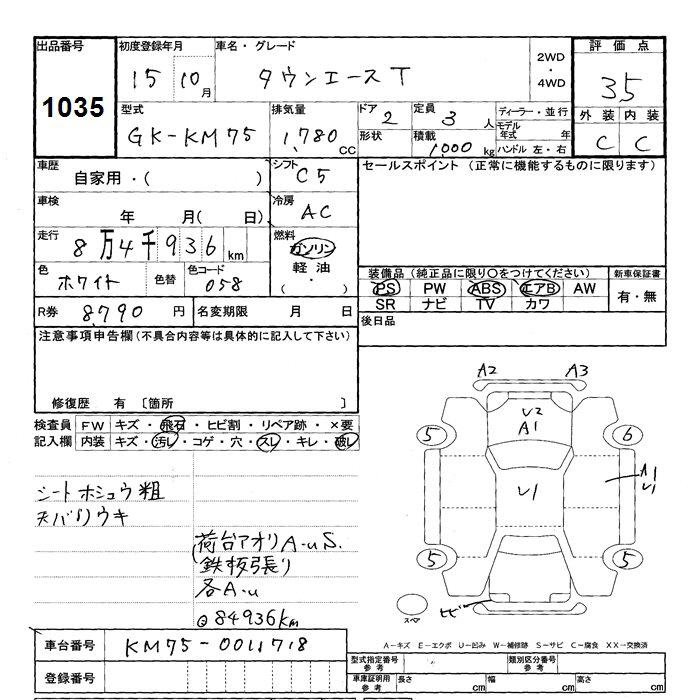 出品番号 初度登録年月 車名・グレード 2WD・4WD 評価点
1035 15 10月 タウンエースT 3.5
型式 排気量 ドア 2 定員 3人 ディーラー・並行 外装 内装
GK-KM75 1,780CC 形状 積載 1,000kg モデル年式 年 ハンドル 左・右 C C
車歴 自家用・( ) シフト C5 セールスポイント (正常に機能するものに限ります)
車検 年 月( 日) 冷房 AC
走行 8万4千936km 燃料 ガソリン 軽油 ( ・ )
色 ホワイト 色替 色コード 058
装備品(純正品に限り〇をつけてください) 新車保証書
PS PW ABS エアB AW 有・無
SR ナビ TV カワ
R券 8,790円 名変期限 月 日 後日品
注意事項申告欄(不具合内容等は具体的に記入して下さい)
修復歴 有 〔箇所 〕
検査員記入欄 FW キズ・飛石・ヒビ割・リペア跡・×要
内装 キズ・汚レ・コゲ・穴・スレ・キレ・破レ
シートホシュウ粗
天バリウキ
荷台アオリA-uS.
鉄板張り
各A.u
84936km
A2 A3
U2
A1
5 6
U1
A1
U1
5 5
スペア ヒビ
車台番号 KM75-0011718
登録番号
A-キズ E-エクボ U-凹み W-補修跡 S-サビ C-腐食 XX→交換済
型式指定番号 参考 類別区分番号 参考
車庫証明用 参考 長さ cm 幅 cm 高さ cm